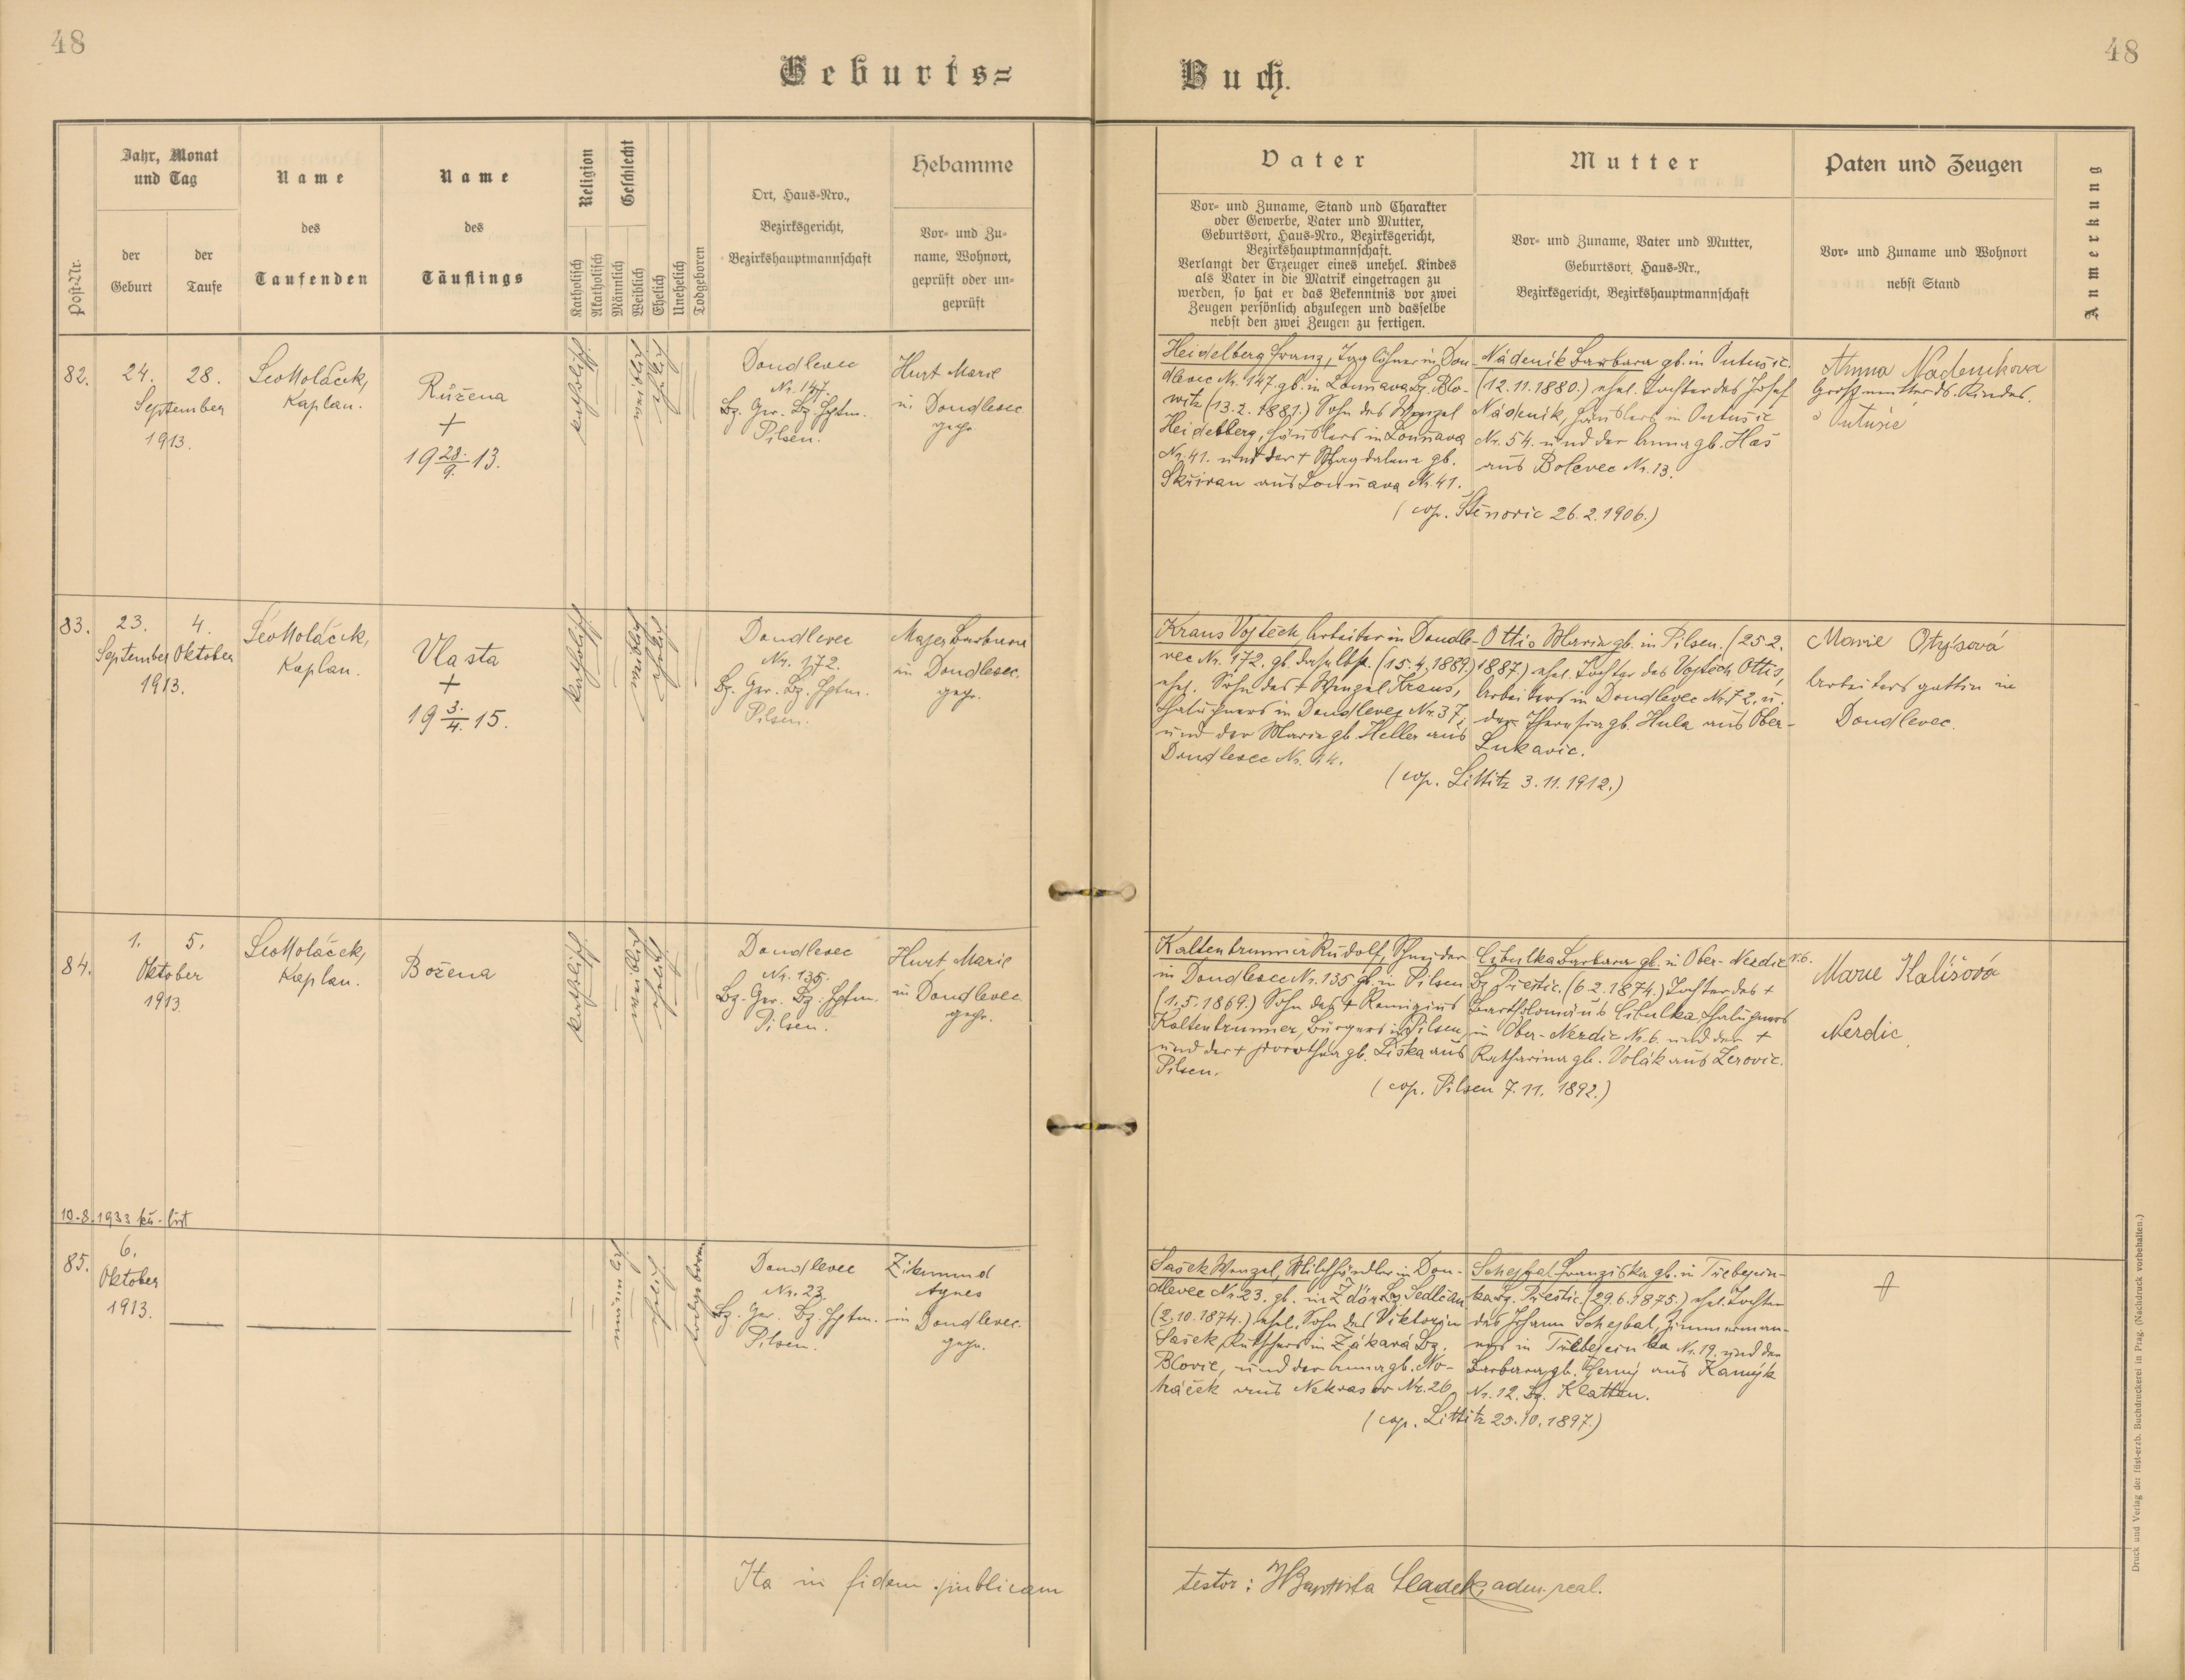 48
48
Geburts=
Buch.
Post-Nr.
Jahr, Monat
und Tag
der
Geburt
der
Taufe
Name
des
Taufenden
Name
des
Täuflings
Religion
Katholisch
Akatholisch
Geschlecht
Männlich
Weiblich
Ehelich
Unehelich
Todgeboren
Ort, Haus-Nro.,
Bezirksgericht,
Bezirkshauptmannschaft
Hebamme
Vor- und Zu-
name, Wohnort,
geprüft oder un-
geprüft
Vater
Vor- und Zuname, Stand und Charakter
oder Gewerbe, Vater und Mutter,
Geburtsort, Haus-Nro., Bezirksgericht,
Bezirkshauptmannschaft.
Verlangt der Erzeuger eines unehel. Kindes
als Vater in die Matrik eingetragen zu
werden, so hat er das Bekenntnis vor zwei
Zeugen persönlich abzulegen und dasselbe
nebst den zwei Zeugen zu fertigen.
Mutter
Vor- und Zuname, Vater und Mutter,
Geburtsort, Haus-Nr.,
Bezirksgericht, Bezirkshauptmannschaft
Paten und Zeugen
Vor- und Zuname und Wohnort
nebst Stand
Anmerkung
82.
24.
28.
September
1913.
Leo Moláček,
Kaplan.
Růžena
+
19 28./9. 13.
katholisch
weiblich
ehelich
Doudlevec
Nr. 147.
Bz. Ger. Bz. Hptm.
Pilsen.
Hurt Marie
in Doudlevec
gepr.
Heidelberg Franz, Taglöhner in Dou-
dlevec Nr. 147. gb. in Louňava Bz. Blo-
witz (13.2.1881.) Sohn des Wenzel
Heidelberg, Häuslers in Louňava
Nr. 41. und der + Magdalena gb.
Skřivan aus Louňava Nr. 41.
Nádeník Barbara gb. in Outušic.
(12.11.1880.) ehel. Tochter des Josef
Nádeník, Häuslers in Outušic
Nr. 54. und der Anna gb. Has
aus Bolevec Nr. 13.
(cop. Štěnovic 26.2.1906.)
Anna Nadeníkova
Großmutter ds. Kindes.
Outušic
83.
23.
4.
September Oktober
1913.
Leo Moláček,
Kaplan.
Vlasta
+
19 3./4. 15.
katholisch
weiblich
ehelich
Doudlevec
Nr. 172.
Bz. Ger. Bz. Hptm.
Pilsen.
Majer Barbara
in Doudlevec.
gepr.
Kraus Vojtěch, Arbeiter in Doudle-
vec Nr. 172. gb. daselbst. (15.4.1889.)
ehel. Sohn des + Wenzel Kraus,
Chalupners in Doudlevec Nr. 37.
und der Maria gb. Heller aus
Doudlevec Nr. 14.
Ottis Maria gb. in Pilsen. (25 2.
1887.) ehel. Tochter des Vojtěch Ottis,
Arbeiters in Doudlevec Nr. 72. u.
der Theresia gb. Hula aus Ober-
Lukavic.
(cop. Littitz 3.11.1912.)
Marie Otysová
Arbeitersgattin in
Doudlevec.
84.
1.
5.
Oktober
1913
Leo Moláček,
Kaplan.
Božena
katholisch
weiblich
ehelich
Doudlevec
Nr. 135.
Bz. Ger. Bz. Hptm.
Pilsen.
Hurt Marie
in Doudlevec
gepr.
Kaltenbrunner Rudolf, Schneider
in Doudlevec Nr. 135 gb. in Pilsen
(1.5.1869.) Sohn des + Remigius
Kaltenbrunner, Bürgers in Pilsen,
und der + Dorothea gb. Liška aus
Pilsen.
Cibulka Barbara gb. in Ober-Nerdic N.6.
Bz. Přestic. (6.2.1874.) Tochter des +
Bartholomäus Cibulka, Chalupners
in Ober-Nerdic Nr. 6. und der +
Katharina gb. Volák aus Žerovic.
(cop. Pilsen 7.11. 1892.)
Marie Kališová
Nerdic
10.8.1933
85.
6.
Oktober
1913.
männlich
ehelich
todgeboren
Doudlevec
Nr. 23.
Bz. Ger. Bz. Hptm.
Pilsen.
Zikmund
Agnes
in Doudlevec.
gepr.
Sašek Wenzel, Milchhändler in Dou-
dlevec Nr. 23. gb. in Ždár Bz. Sedlčan
(2.10.1874.) ehel. Sohn des Viktorin
Sašek, Kutschers in Žákavá Bz.
Blovic, und der Anna gb. No-
háček aus Nekvasov Nr. 26.
Schejbal Franziska gb. in Třebejcin-
ka Bz. Přestic. (29.6.1875.) ehel. Tochter
des Johann Schejbal, Zimmerman-
nes in Třebejcinka Nr. 19. und der
Barbara gb. Černý aus Kamýk
Nr. 12. Bz. Klattau.
(cop. Littitz 25.10.1897.)
Ita in fidem publicam
testor: Baptista Sladek, adm. real.
Druck und Verlag der fürst-erzb. Buchdruckerei in Prag. (Nachdruck vorbehalten.)